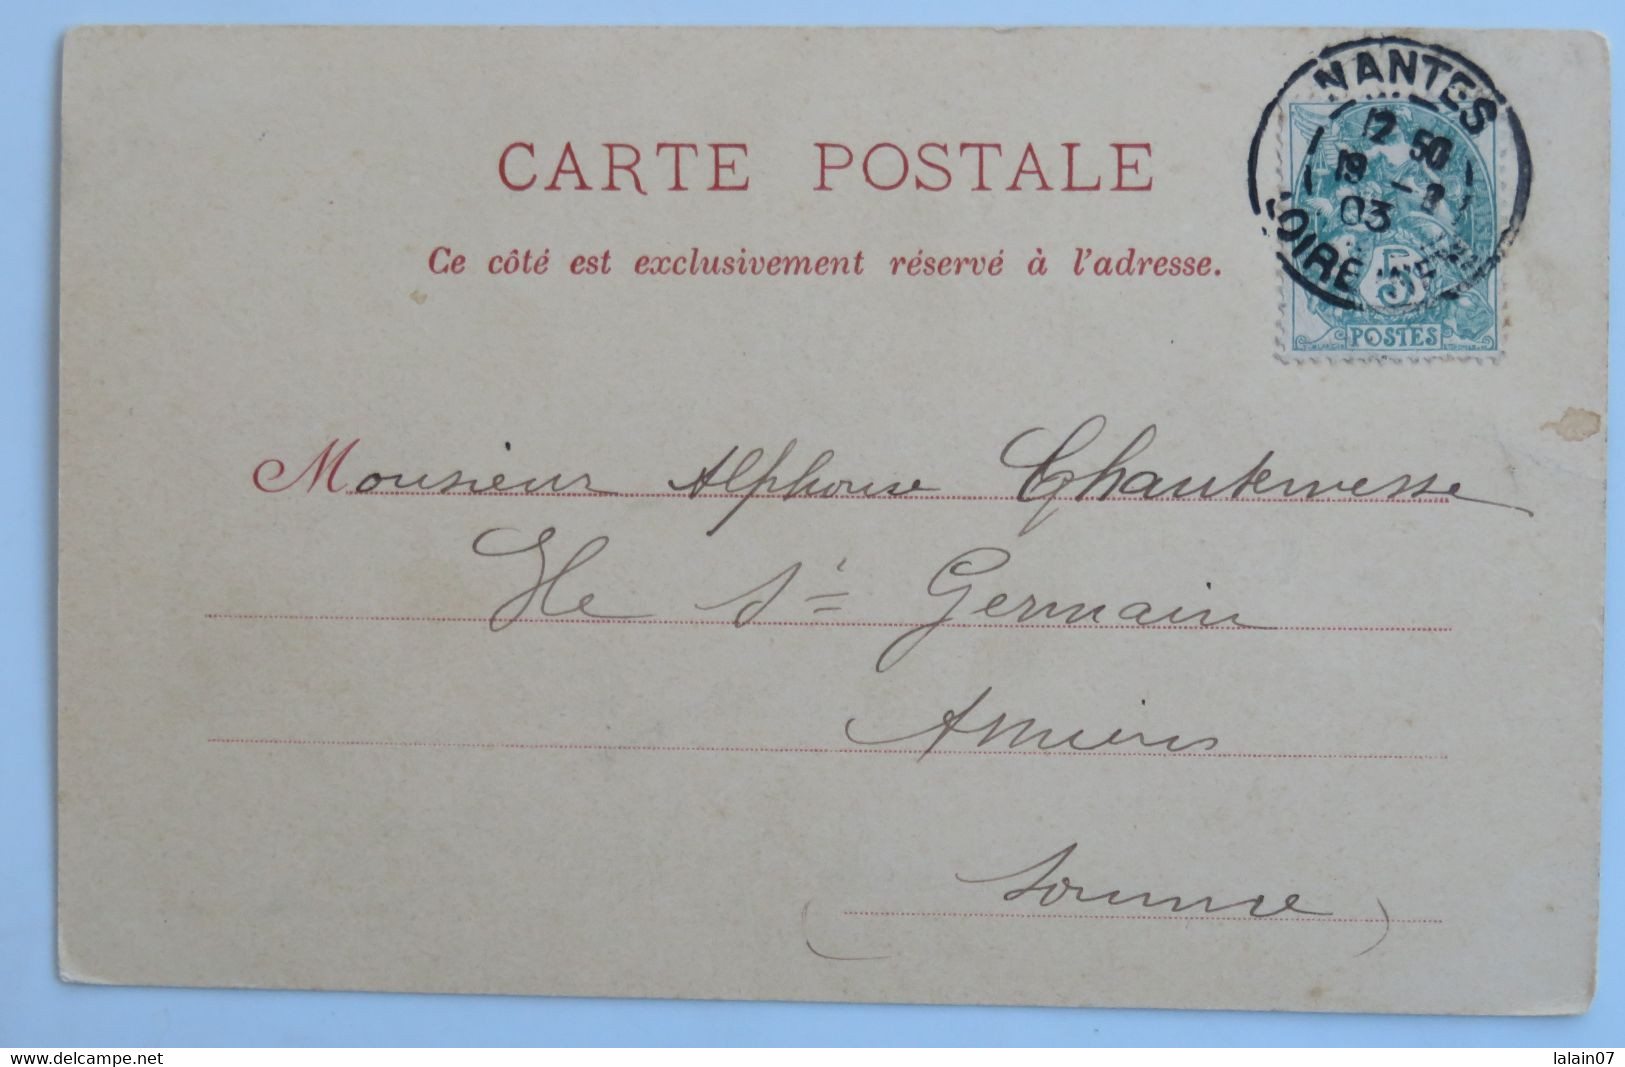 CARTE POSTALE
Ce côté est exclusivement réservé à l'adresse.
NANTES
12 50
19 -
03
LOIRE INF
5
POSTES
Monsieur Alphonse
Ile St Germain
Amiens
(Somme)
www.delcampe.net
lalain07